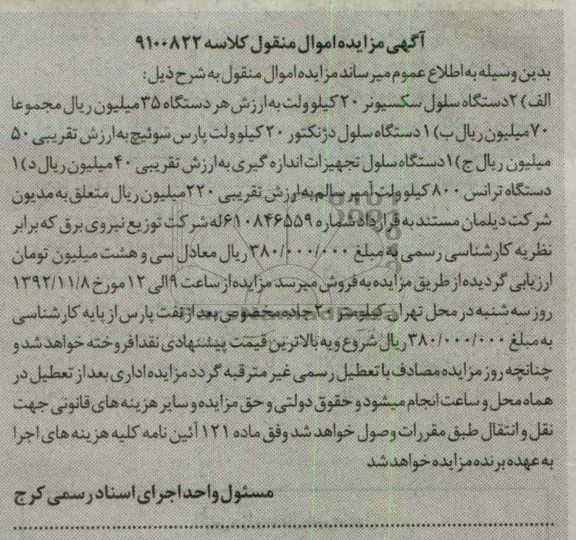 آگهی مزایده اموال منقول کلاسه ۹۱۰۰۸۲۲
بدین وسیله به اطلاع عموم میرساند مزایده اموال منقول به شرح ذیل:
الف) ۲ دستگاه سلول سکسیونر ۲۰ کیلو ولت به ارزش هر دستگاه ۳۵ میلیون ریال مجموعا
۷۰ میلیون ریال ب) ۱ دستگاه سلول دژنکتور ۲۰ کیلو ولت پارس سوئیچ به ارزش تقریبی ۵۰
میلیون ریال ج) ۱ دستگاه سلول تجهیزات اندازه گیری به ارزش تقریبی ۴۰ میلیون ریال د) ۱
دستگاه ترانس ۸۰۰ کیلو ولت آمپر سالم به ارزش تقریبی ۲۲۰ میلیون ریال متعلق به مدیون
شرکت دیلمان مستند به قرارداد شماره ۶۱۰۸۴۶۵۵۹ له شرکت توزیع نیروی برق که برابر
نظریه کارشناسی رسمی به مبلغ ۳۸۰/۰۰۰/۰۰۰ ریال معادل سی و هشت میلیون تومان
ارزیابی گردیده از طریق مزایده به فروش میرسد مزایده از ساعت ۹ الی ۱۲ مورخ ۱۳۹۲/۱۱/۸
روز سه شنبه در محل تهران کیلومتر ۲۰ جاده مخصوص بعد از نفت پارس از پایه کارشناسی
به مبلغ ۳۸۰/۰۰۰/۰۰۰ ریال شروع و به بالاترین قیمت پیشنهادی نقدا فروخته خواهد شد و
چنانچه روز مزایده مصادف با تعطیل رسمی غیر مترقبه گردد مزایده اداری بعد از تعطیل در
همان محل و ساعت انجام میشود و حقوق دولتی و حق مزایده و سایر هزینه های قانونی جهت
نقل و انتقال طبق مقررات وصول خواهد شد وفق ماده ۱۲۱ آئین نامه کلیه هزینه های اجرا
به عهده برنده مزایده خواهد شد
مسئول واحد اجرای اسناد رسمی کرج